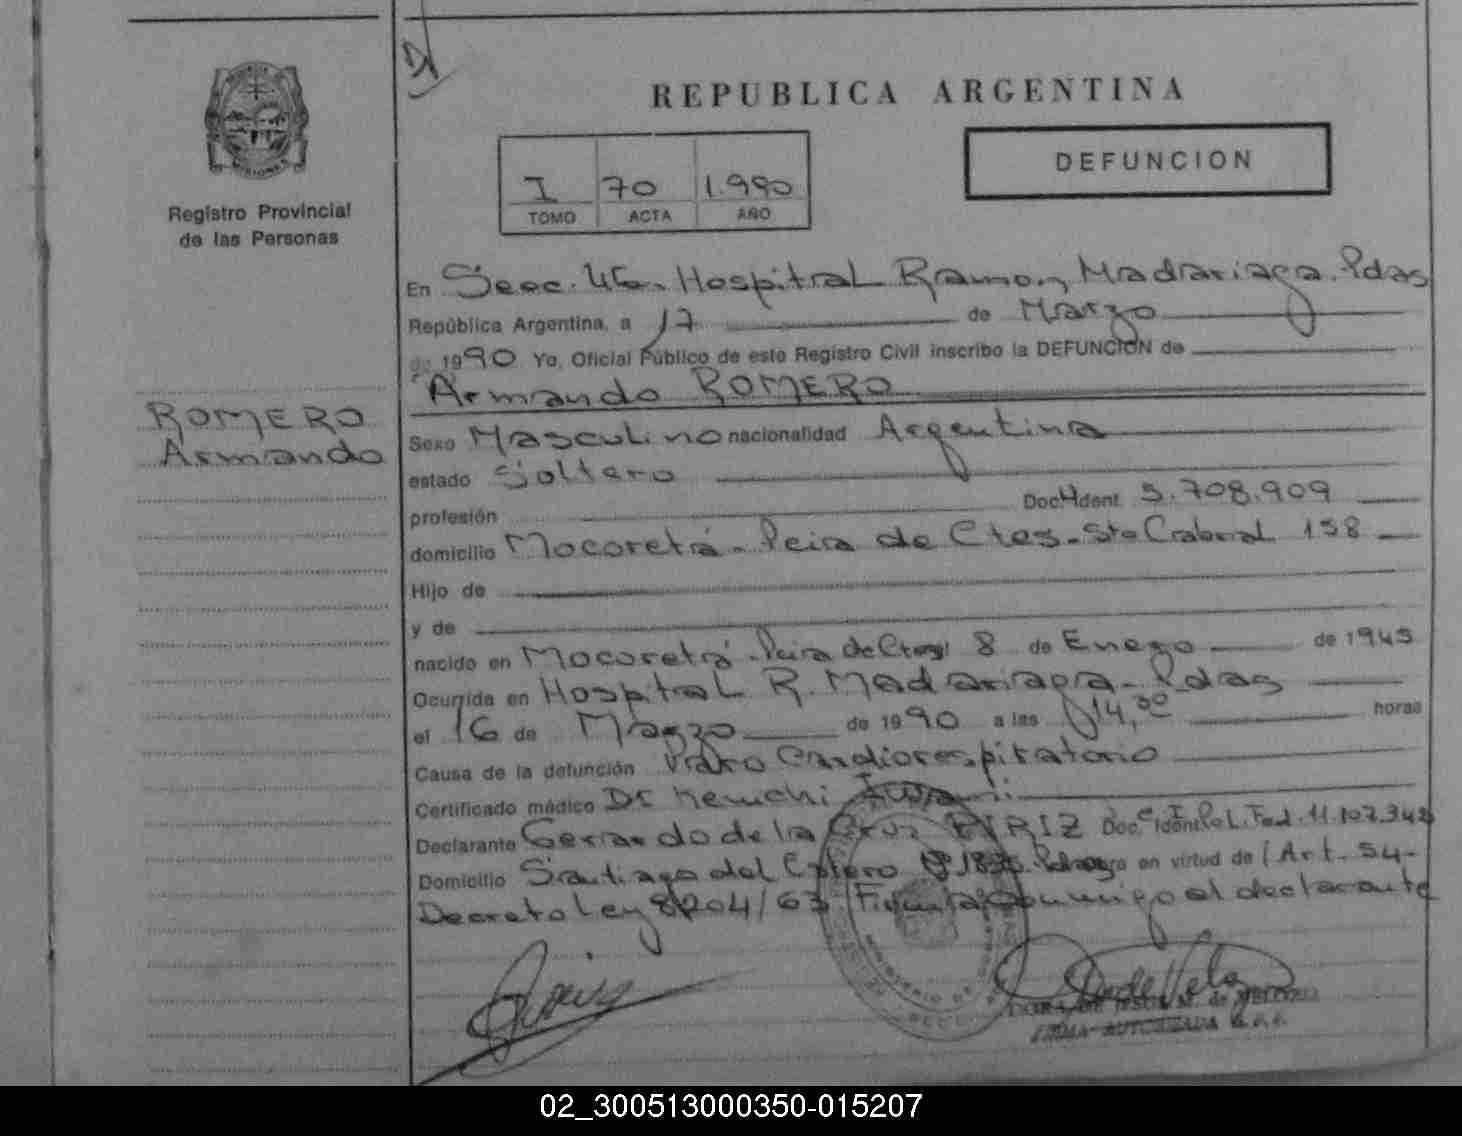 REPUBLICA ARGENTINA
DEFUNCION
I 70 1.990
TOMO ACTA AÑO
MISIONES
Registro Provincial
de las Personas
ROMERO
Armando
En Secc. 4ta. Hospital Ramon Madariaga. Pdas
República Argentina, a 17 de Marzo
de 1990 Yo, Oficial Público de este Registro Civil inscribo la DEFUNCION de
Armando ROMERO
Sexo Masculino nacionalidad Argentina
estado Soltero
profesión Doc. Ident. 5.708.909
domicilio Mocoretá - Pcia de Ctes - Sto Cabral 158
Hijo de
y de
nacido en Mocoretá - Pcia de Ctes el 8 de Enero de 1945
Ocurrida en Hospital R. Madariaga - Pdas
el 16 de Marzo de 1990 a las 14,30 horas
Causa de la defunción Paro Cardiorespiratorio
Certificado médico Dr
Declarante Gerardo de la Cruz PIRIZ Doc. Ident. Pol. Fed. 11.107.342
Domicilio Santiago del Estero en virtud de Art. 54-
Decreto Ley 8204/63. Firma conmigo el declarante
FIRMA AUTORIZADA
02_300513000350-015207